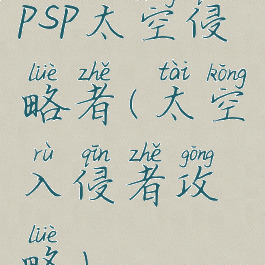 PSP太空侵
lüè zhě tài kōng
略者(太空
rù qīn zhě gōng
入侵者攻
lüè
略)